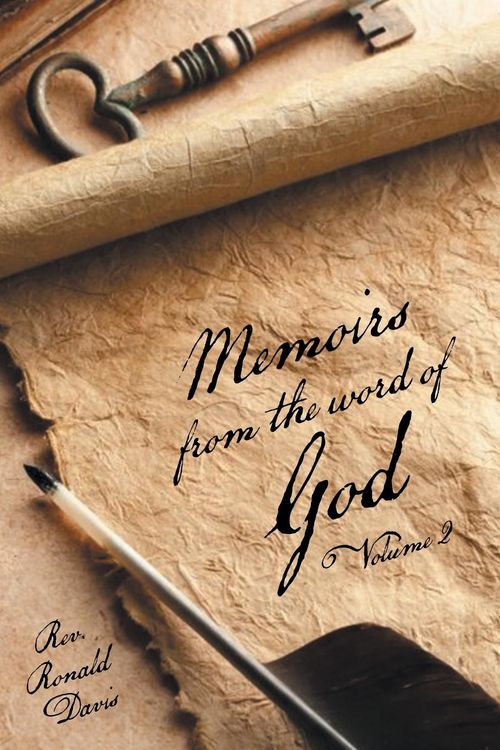 Memoirs
from the word of
God
Volume 2
Rev.
Ronald
Davis